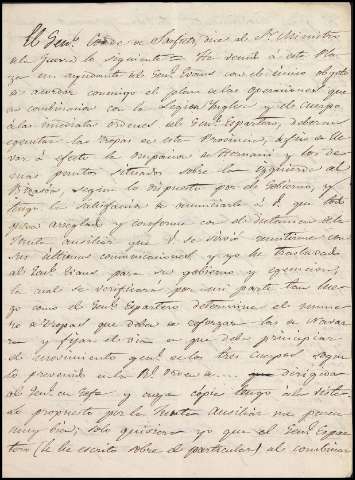 El Genl. Conde de Sarsfield, dice al Sr. Ministro
de la Guerra lo siguiente = He venido a esta Pla-
za un ayudante del Genl. Evans con el único objeto
de acordar conmigo el plan de las operaciones que
en combinacion con la Legion Inglesa y el cuerpo
á las inmediatas ordenes del Genl. Espartero, deberán
ejecutar las tropas de esta Provincia, á fin de lle-
var á efecto la ocupacion de Hernani y los de
mas puntos situados sobre la izquierda del
segun lo dispuesto por el Gobierno, y
tengo la satisfaccion de manifestarle á V. que todo
queda arreglado y conforme con el dictamen de la
Junta auxiliar que V. se sirvió remitirme con
sus ultimas comunicaciones, y yo he trasladado
al Genl. Evans para su gobierno y egecucion;
la cual se verificará por mi parte tan lue-
go como el Genl. Espartero determine el nume-
ro de tropas que deba reforzar las de Navar-
ra y fijar el dia en que debe principiar
el movimiento genl. de los tres cuerpos, segun
lo prevenido en la Rl. orden de.... dirigida
al Genl. en Gefe, y cuya copia tengo á la vista.
Lo propuesto por la Junta Auxiliar me parece
muy bien; solo quisiera yo que el Genl. Espar-
tero (le he escrito sobre el particular) al combinar